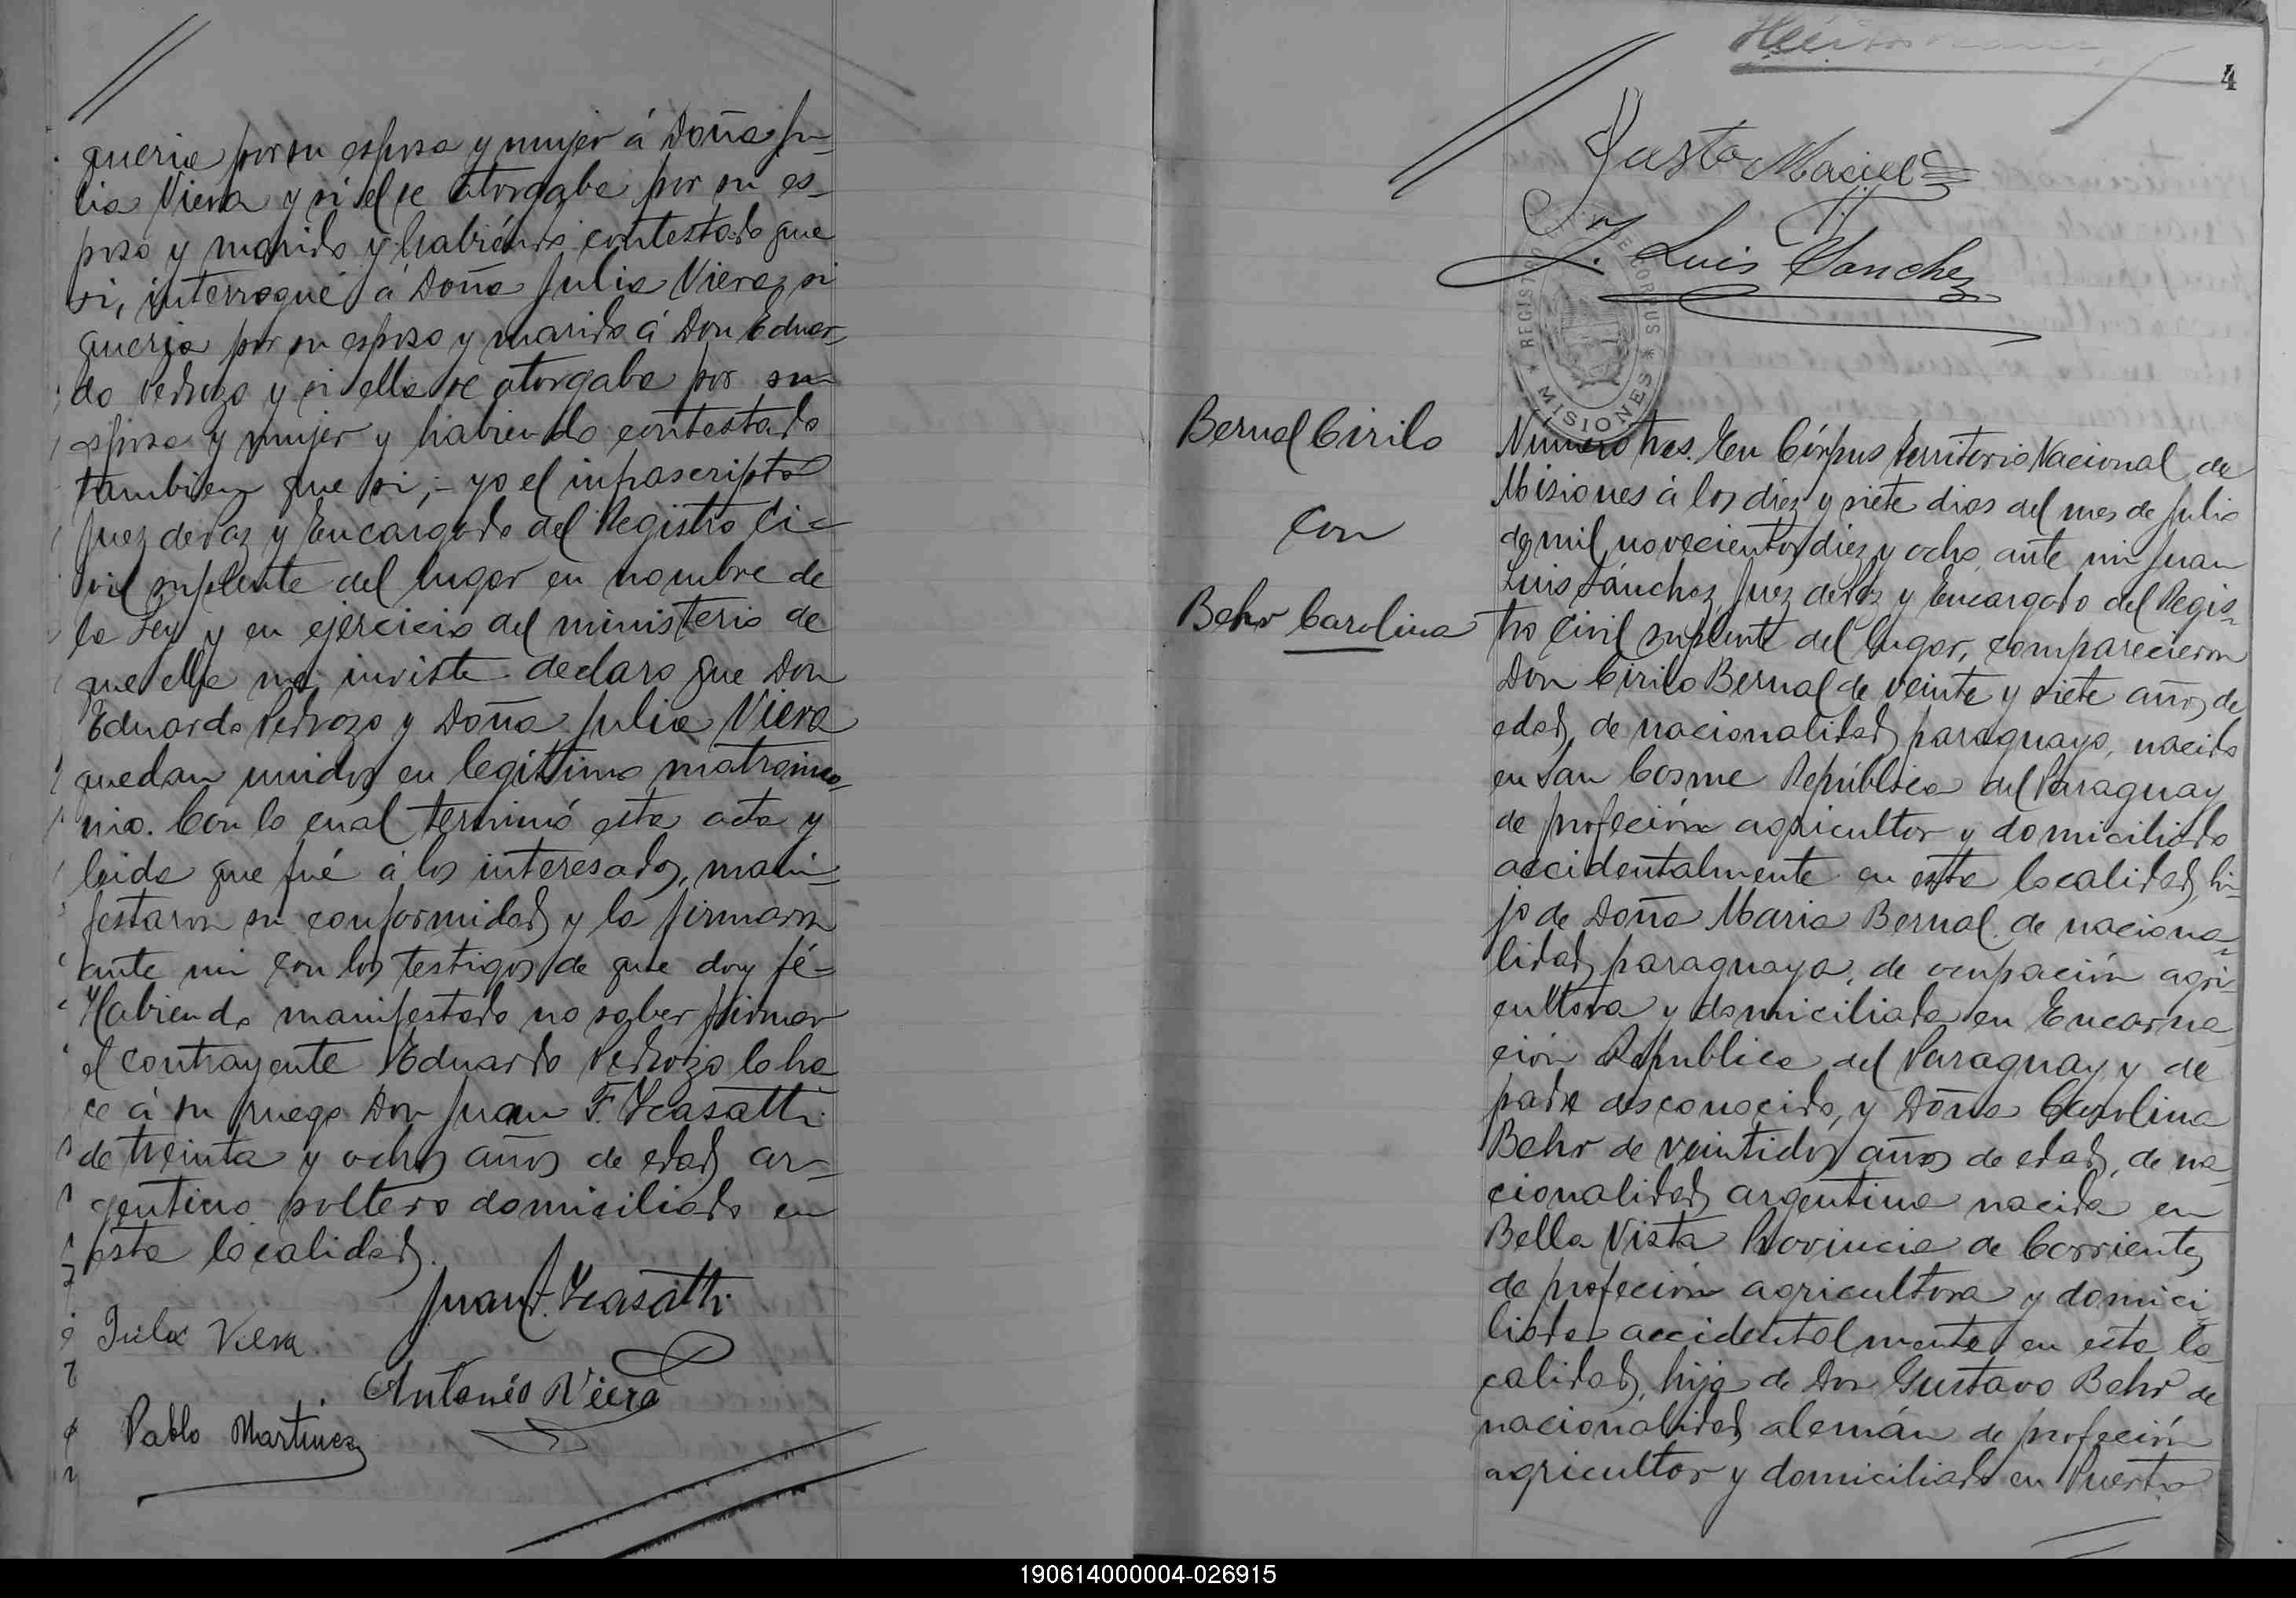 queria por su esposa y mujer á Doña Ju-
lia Viera y si él se otorgaba por su es-
poso y marido y habiendo contestado que
si, interrogué á Doña Julia Viera, si
queria por su esposo y marido á Don Eduar-
do Pedrozo y si ella se otorgaba por su
esposa y mujer y habiendo contestado
tambien que si; - yo el infrascripto
Juez de Paz y Encargado del Registro Ci-
vil suplente del lugar en nombre de
la Ley y en ejercicio del ministerio de
que ella me inviste declaro que Don
Eduardo Pedrozo y Doña Julia Viera
quedan unidos en legittimo matrimo-
nio. Con lo cual terminó esta acta y
leida que fué á los interesados, mani-
festaron su conformidad y la firmaron
ante mi con los testigos de que doy fé-
Habiendo manifestado no saber firmar
el contrayente Eduardo Pedrozo lo ha
ce á su ruego Don Juan F. Ycasatti
de treinta y ocho años de edad ar-
gentino soltero domiciliado en
esta localidad.
Juan F. Ycasatti
Julia Viera
Antonio Viera
Pablo Martinez
4
Justo Maciel
J. Luis Sanchez
REGISTRO CORPUS
* MISIONES *
Bernal Cirilo
con
Behr Carolina
Número tres. En Córpus Territorio Nacional de
Misiones á los diez y siete dias del mes de Julio
de mil novecientos diez y ocho, ante mi Juan
Luis Sánchez Juez de Paz y Encargado del Regis-
tro Civil suplente del lugar, comparecieron
Don Cirilo Bernal de veinte y siete años de
edad, de nacionalidad paraguayo, nacido
en San Cosme República del Paraguay
de profeción agricultor y domiciliado
accidentalmente en esta localidad, hi-
jo de Doña Maria Bernal de naciona-
lidad paraguaya, de ocupación agri-
cultora y domiciliada en Encarna
ción Republica del Paraguay y de
padre desconocido, y Doña Carolina
Behr de veintidos años de edad, de na-
cionalidad argentina nacida en
Bella Vista Provincia de Corrientes
de profeción agricultora y domici
liada accidentalmente en esta lo
calidad, hija de Don Gustavo Behr de
nacionalidad alemán de profeción
agricultor y domiciliado en Puerto
190614000004-026915